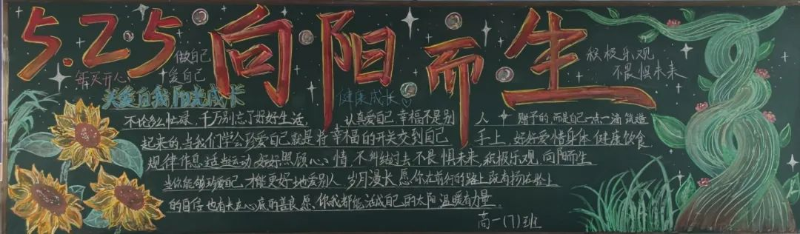 5.25 向阳而生
做自己
每天开心
爱自己
积极乐观
不畏惧未来
关爱自我 阳光成长
健康成长
不论多么忙碌，千万别忘了好好生活 认真爱自己 幸福不是别人 赠予的 而是自己一点一滴筑造
起来的 当我们学会珍爱自己就是将幸福的开关交到自己手上，好好爱惜身体 健康饮食
规律作息 适当运动 好好照顾心情 不纠结过去 不畏惧未来 积极乐观 向阳而生
当你能够珍爱自己 才能更好地爱别人 岁月漫长 愿你在前行的路上 既有扬在脸上
的自信 也有长在心底的善良 愿你我都能活成自己的太阳 温暖有力量
高一(7)班